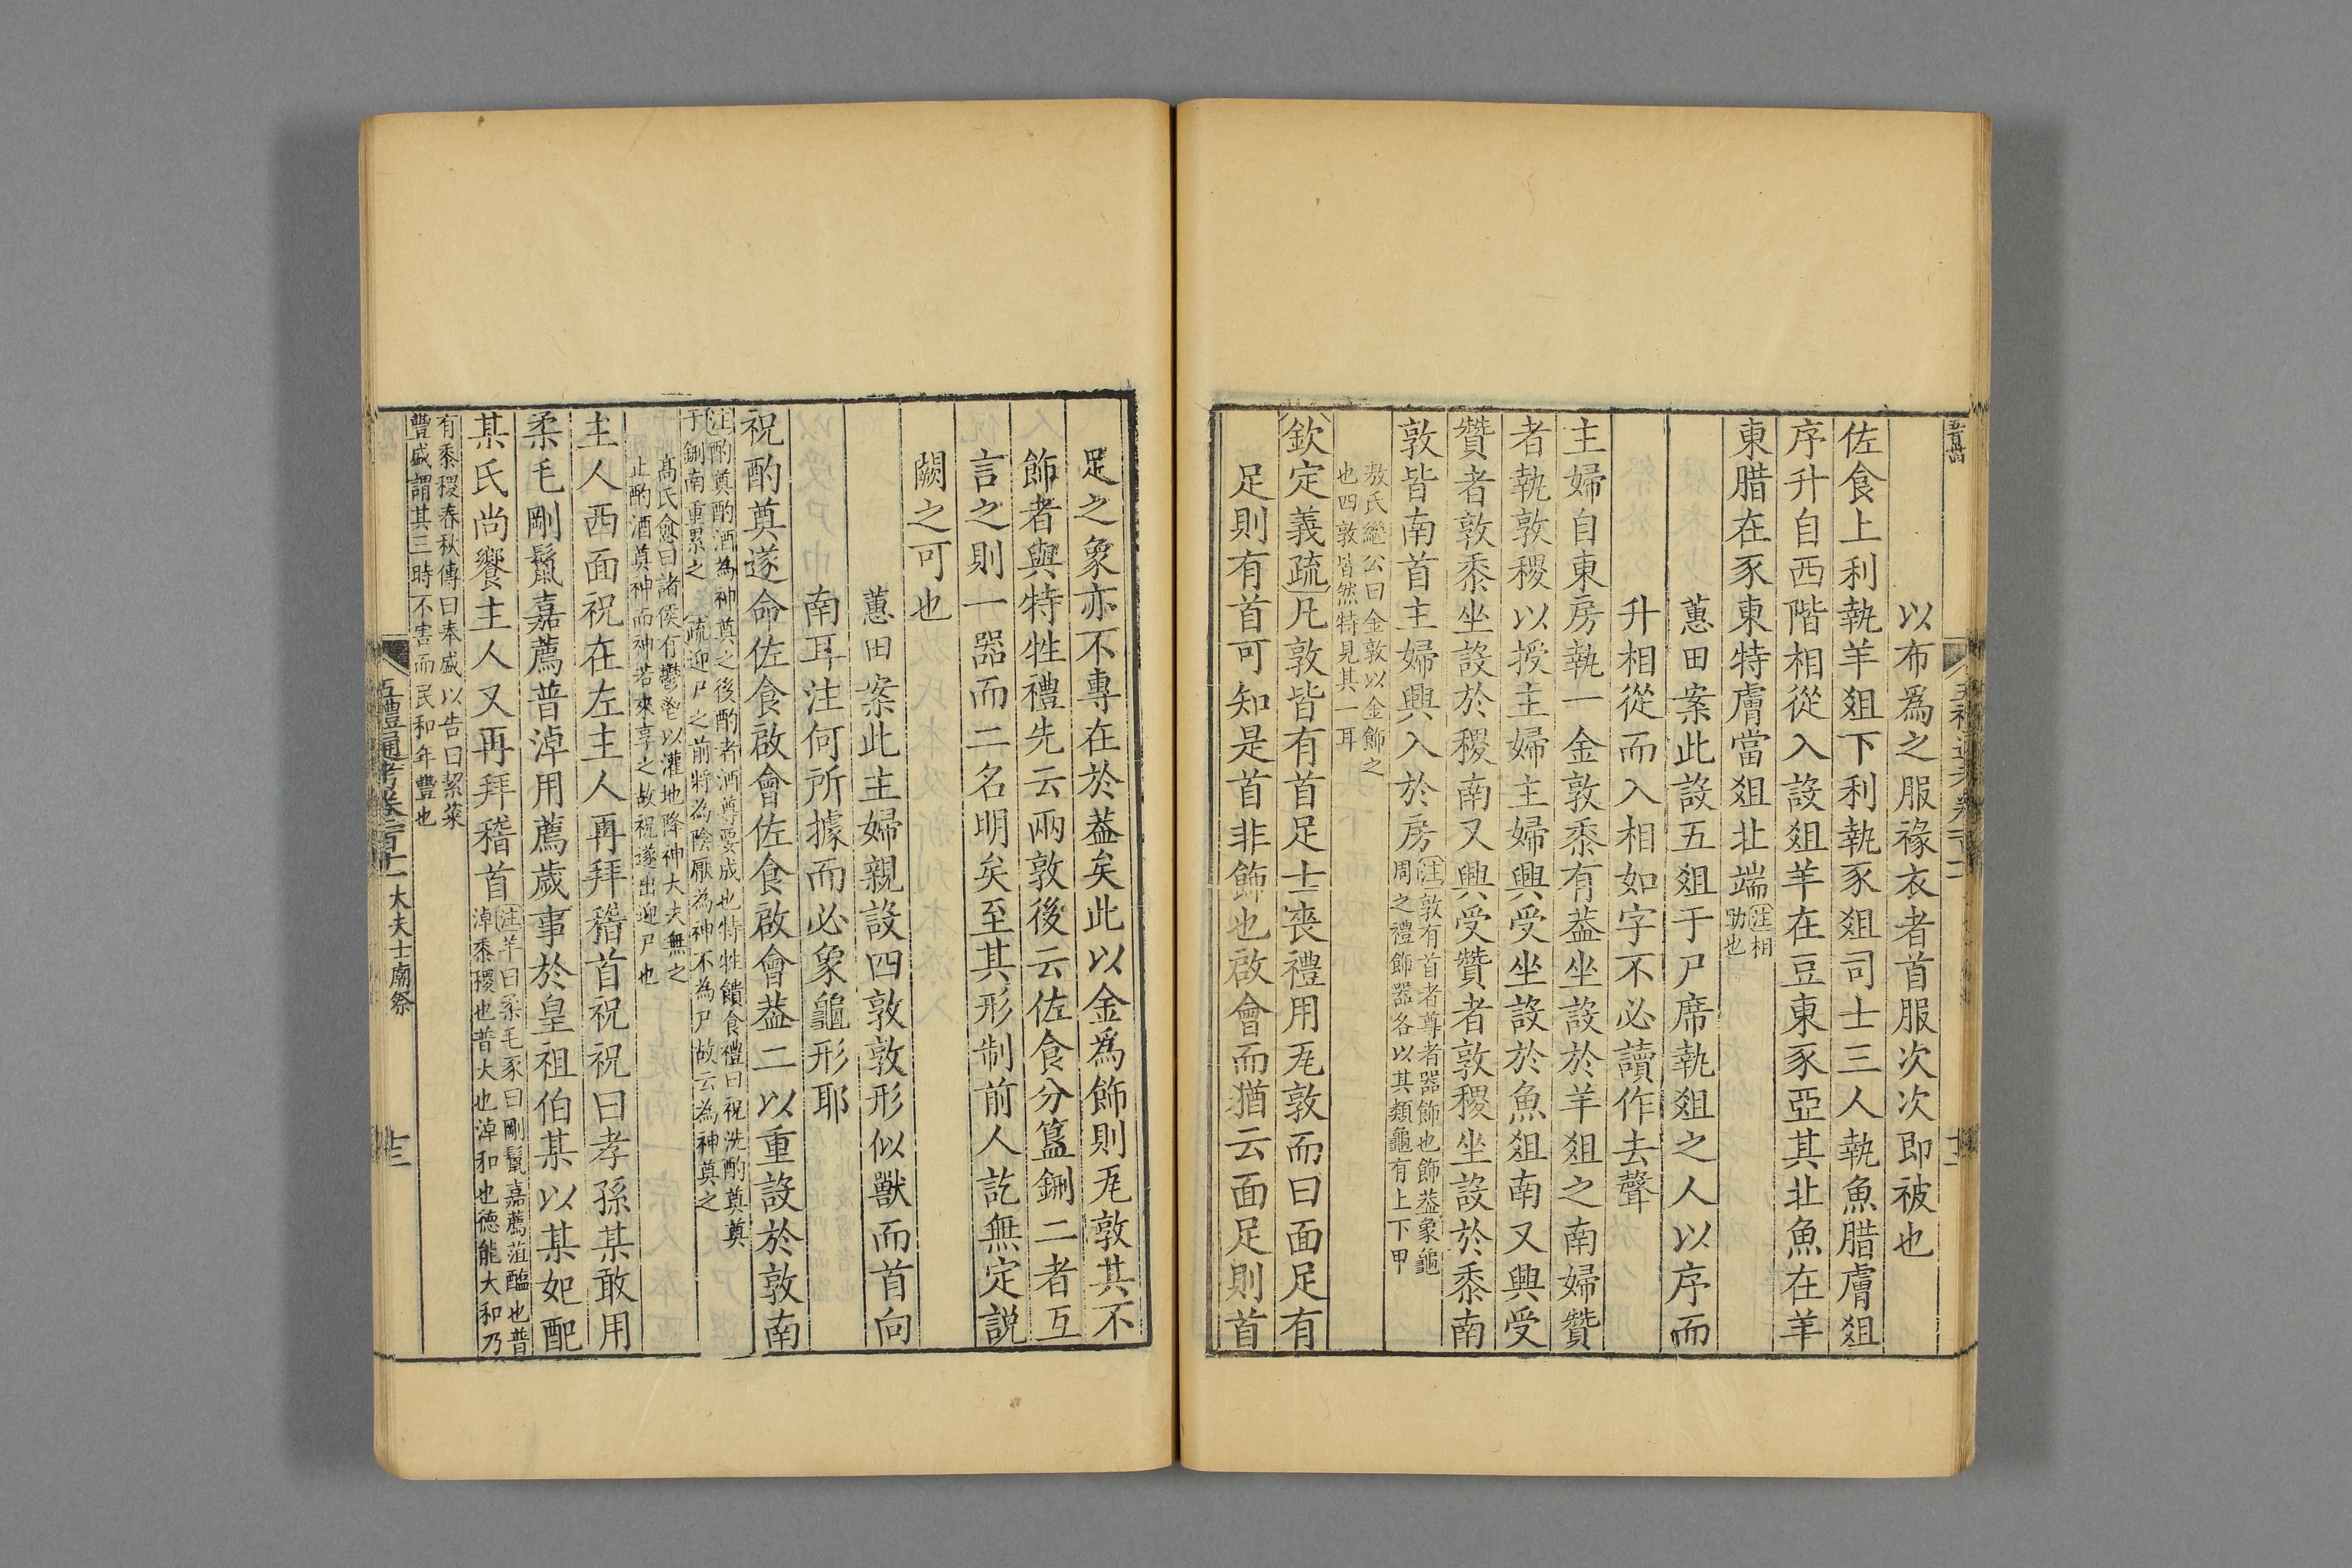 以布爲之服褖衣者首服次次即被也
佐食上利執羊俎下利執豕俎司士三人執魚腊膚俎
序升自西階相從入設俎羊在豆東豕亞其北魚在羊
東腊在豕東特膚當俎北端注相
助也
蕙田案此設五俎于尸席執俎之人以序而
升相從而入相如字不必讀作去聲
主婦自東房執一金敦黍有葢坐設於羊俎之南婦贊
者執敦稷以授主婦主婦興受坐設於魚俎南又興受
贊者敦黍坐設於稷南又興受贊者敦稷坐設於黍南
敦皆南首主婦興入於房注敦有首者尊者器飾也飾葢象龜
周之禮飾器各以其類龜有上下甲
敖氏繼公曰金敦以金飾之
也四敦皆然特見其一耳
欽定義疏凡敦皆有首足士喪禮用兂敦而曰面足有
足則有首可知是首非飾也啟會而猶云面足則首
足之象亦不專在於葢矣此以金爲飾則兂敦其不
飾者與特牲禮先云兩敦後云佐食分簋鉶二者互
言之則一器而二名明矣至其形制前人訖無定説
闕之可也
蕙田案此主婦親設四敦敦形似獸而首向
南耳注何所據而必象龜形耶
祝酌奠遂命佐食啟會佐食啟會葢二以重設於敦南
注酌奠酌酒為神奠之後酌者酒尊要成也特牲饋食禮曰祝洗酌奠奠
于鉶南重累之 疏迎尸之前將為陰厭為神不為尸故云為神奠之
高氏愈曰諸侯有鬱鬯以灌地降神大夫無之
止酌酒奠神而神若來享之故祝遂出迎尸也
主人西面祝在左主人再拜稽首祝祝曰孝孫某敢用
柔毛剛鬣嘉薦普淖用薦歲事於皇祖伯某以某妃配
某氏尚饗主人又再拜稽首注羊曰柔毛豕曰剛鬣嘉薦菹醢也普
淖黍稷也普大也淖和也德能大和乃
有黍稷春秋傳曰奉盛以告曰絜粢
豐盛謂其三時不害而民和年豐也
五禮通考卷一百十一 大夫士廟祭